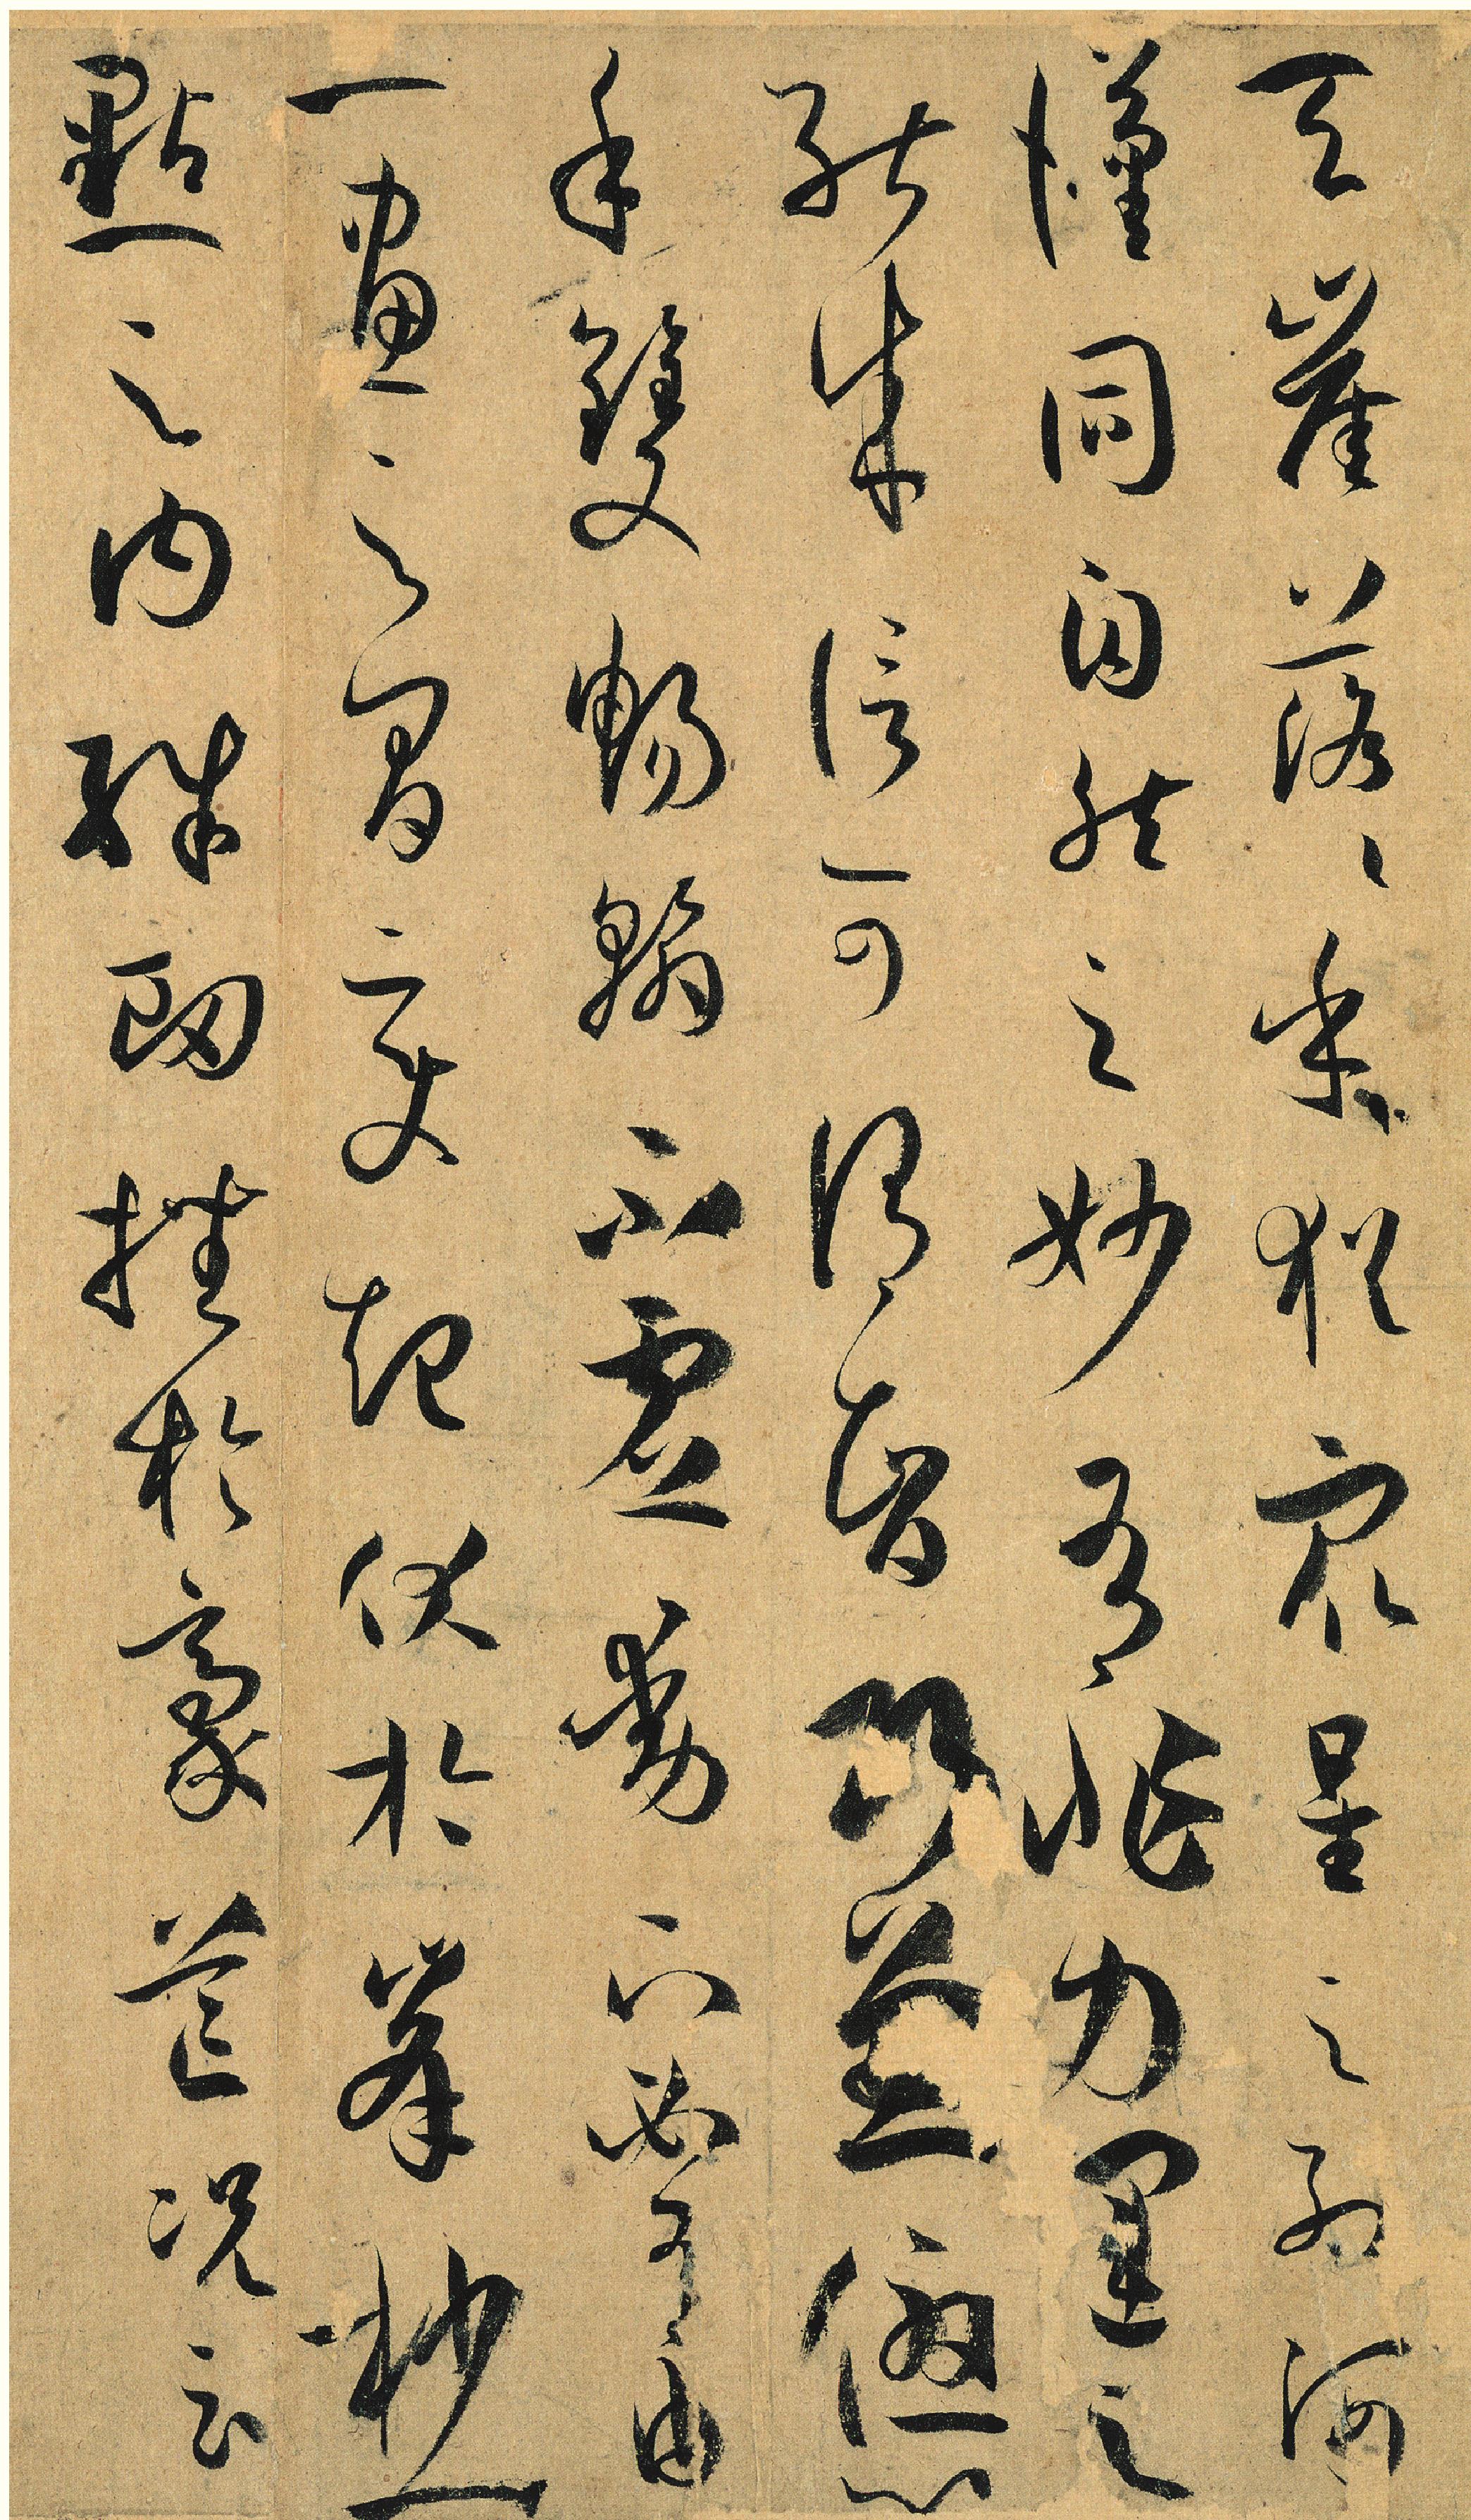 天崖落〻乎猶衆星之列河
漢同自然之妙有非力運之
能成信可謂智巧兼優心
手雙暢翰不虛動下必有由
一畫之間變起伏於峯杪一
點之內殊衄挫於豪芒況云